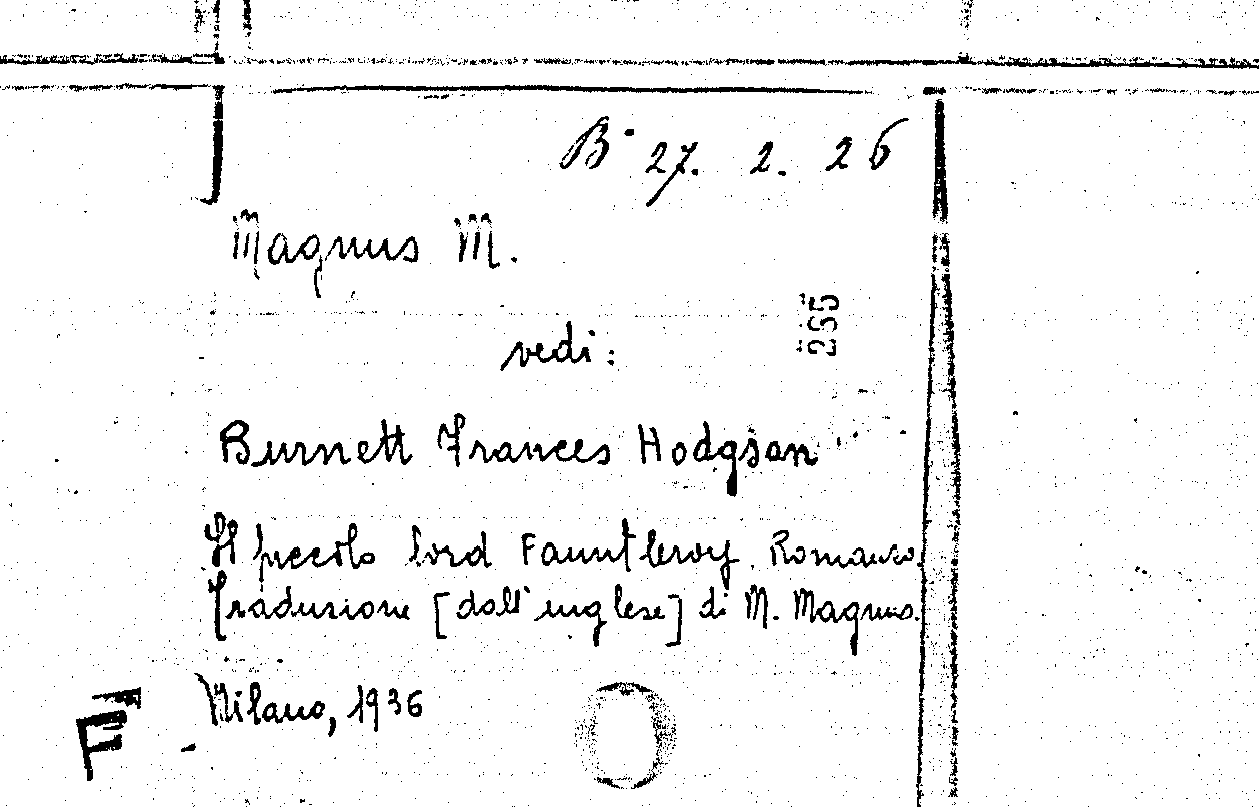 B· 27. 2. 26
Magnus M.
265
vedi:
Burnett Frances Hodgson
Il piccolo lord Fauntleroy. Romanzo.
Traduzione [dall'inglese] di M. Magnus.
Milano, 1936
F